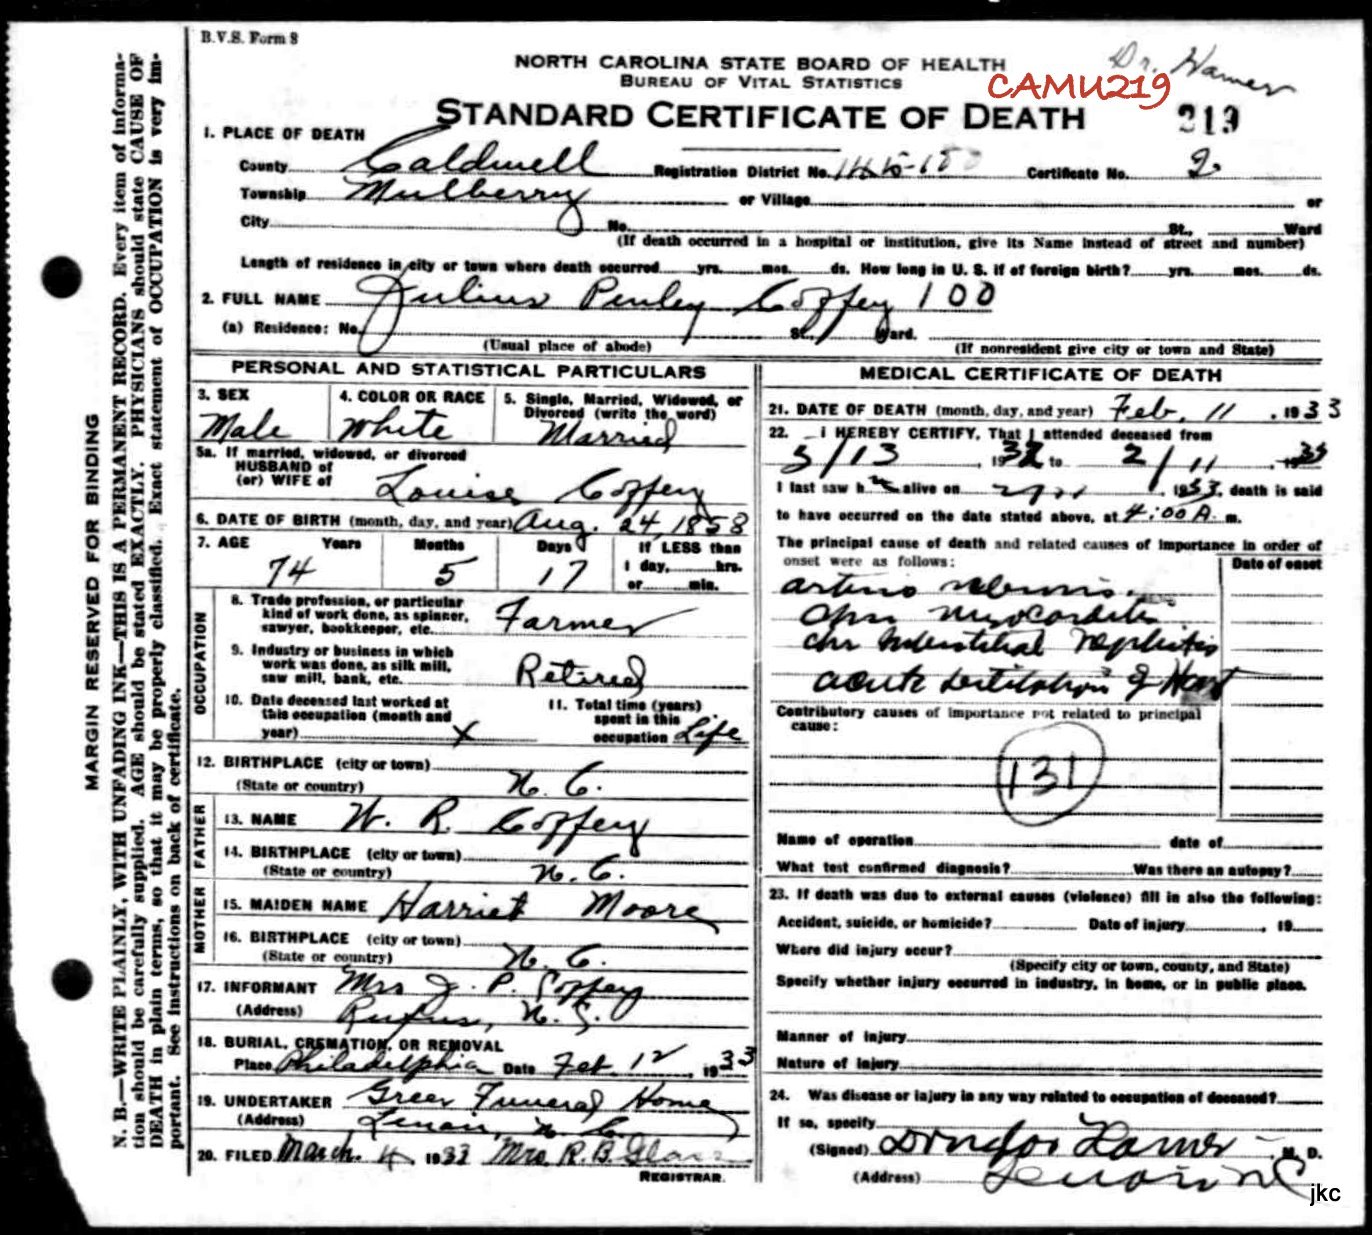 B.V.S. Form 8
NORTH CAROLINA STATE BOARD OF HEALTH
BUREAU OF VITAL STATISTICS
Dr. Hamer
CAMU219
STANDARD CERTIFICATE OF DEATH
219
1. PLACE OF DEATH
County Caldwell Registration District No. Certificate No. 2
Township Mulberry or Village or
City No. St., Ward
(If death occurred in a hospital or institution, give its Name instead of street and number)
Length of residence in city or town where death occurred yrs. mos. ds. How long in U. S. if of foreign birth? yrs. mos. ds.
2. FULL NAME Julius Penley Coffey 100
(a) Residence: No. St., Ward.
(Usual place of abode) (If nonresident give city or town and State)
PERSONAL AND STATISTICAL PARTICULARS
3. SEX 4. COLOR OR RACE 5. Single, Married, Widowed, or
Divorced (write the word)
Male White Married
5a. If married, widowed, or divorced
HUSBAND of
(or) WIFE of Louise Coffey
6. DATE OF BIRTH (month, day, and year) Aug. 24, 1858
7. AGE Years Months Days If LESS than
1 day, hrs.
74 5 17 or min.
OCCUPATION
8. Trade profession, or particular
kind of work done, as spinner,
sawyer, bookkeeper, etc. Farmer
9. Industry or business in which
work was done, as silk mill,
saw mill, bank, etc. Retired
10. Date deceased last worked at
this occupation (month and
year) X
11. Total time (years)
spent in this
occupation Life
12. BIRTHPLACE (city or town)
(State or country) N. C.
FATHER
13. NAME W. R. Coffey
14. BIRTHPLACE (city or town)
(State or country) N. C.
MOTHER
15. MAIDEN NAME Harriet Moore
16. BIRTHPLACE (city or town)
(State or country) N. C.
17. INFORMANT Mrs J. P. Coffey
(Address) Rufus, N. C.
18. BURIAL, CREMATION, OR REMOVAL
Place Philadelphia Date Feb. 12, 1933
19. UNDERTAKER Greer Funeral Home
(Address) Lenoir, N. C.
20. FILED March 4 1933 Mrs. R. B.
REGISTRAR.
MEDICAL CERTIFICATE OF DEATH
21. DATE OF DEATH (month, day, and year) Feb. 11, 1933
22. I HEREBY CERTIFY, That I attended deceased from
5/13, 1932 to 2/11, 1933
I last saw h alive on 1933, death is said
to have occurred on the date stated above, at 4:00 A. m.
The principal cause of death and related causes of importance in order of
onset were as follows: Date of onset
chr myocarditis
chr Interstitial Nephritis
acute dilitation of Heart
Contributory causes of importance not related to principal
cause:
131
Name of operation date of
What test confirmed diagnosis? Was there an autopsy?
23. If death was due to external causes (violence) fill in also the following:
Accident, suicide, or homicide? Date of injury , 19
Where did injury occur?
(Specify city or town, county, and State)
Specify whether injury occurred in industry, in home, or in public place.
Manner of injury
Nature of injury
24. Was disease or injury in any way related to occupation of deceased?
If so, specify
(Signed) Hamer M. D.
(Address) Lenoir NC
jkc
MARGIN RESERVED FOR BINDING
N. B.—WRITE PLAINLY, WITH UNFADING INK—THIS IS A PERMANENT RECORD. Every item of informa-
tion should be carefully supplied. AGE should be stated EXACTLY. PHYSICIANS should state CAUSE OF
DEATH in plain terms, so that it may be properly classified. Exact statement of OCCUPATION is very im-
portant. See instructions on back of certificate.